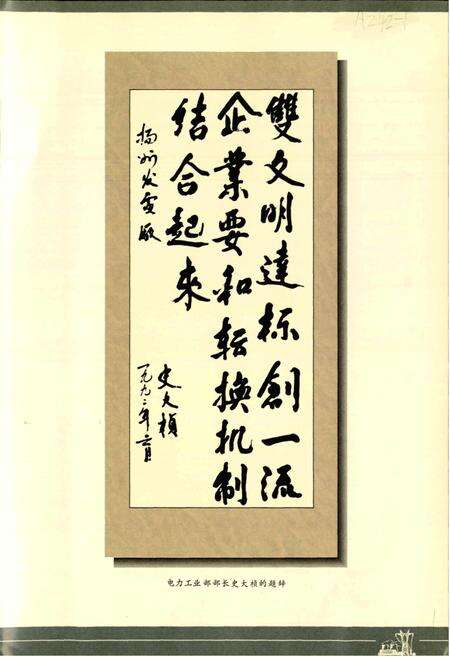 雙文明達标創一流
企業要和転換机制
结合起來
扬州发電厰
史大楨
一九九三年六月
电力工业部部长史大桢的题辞